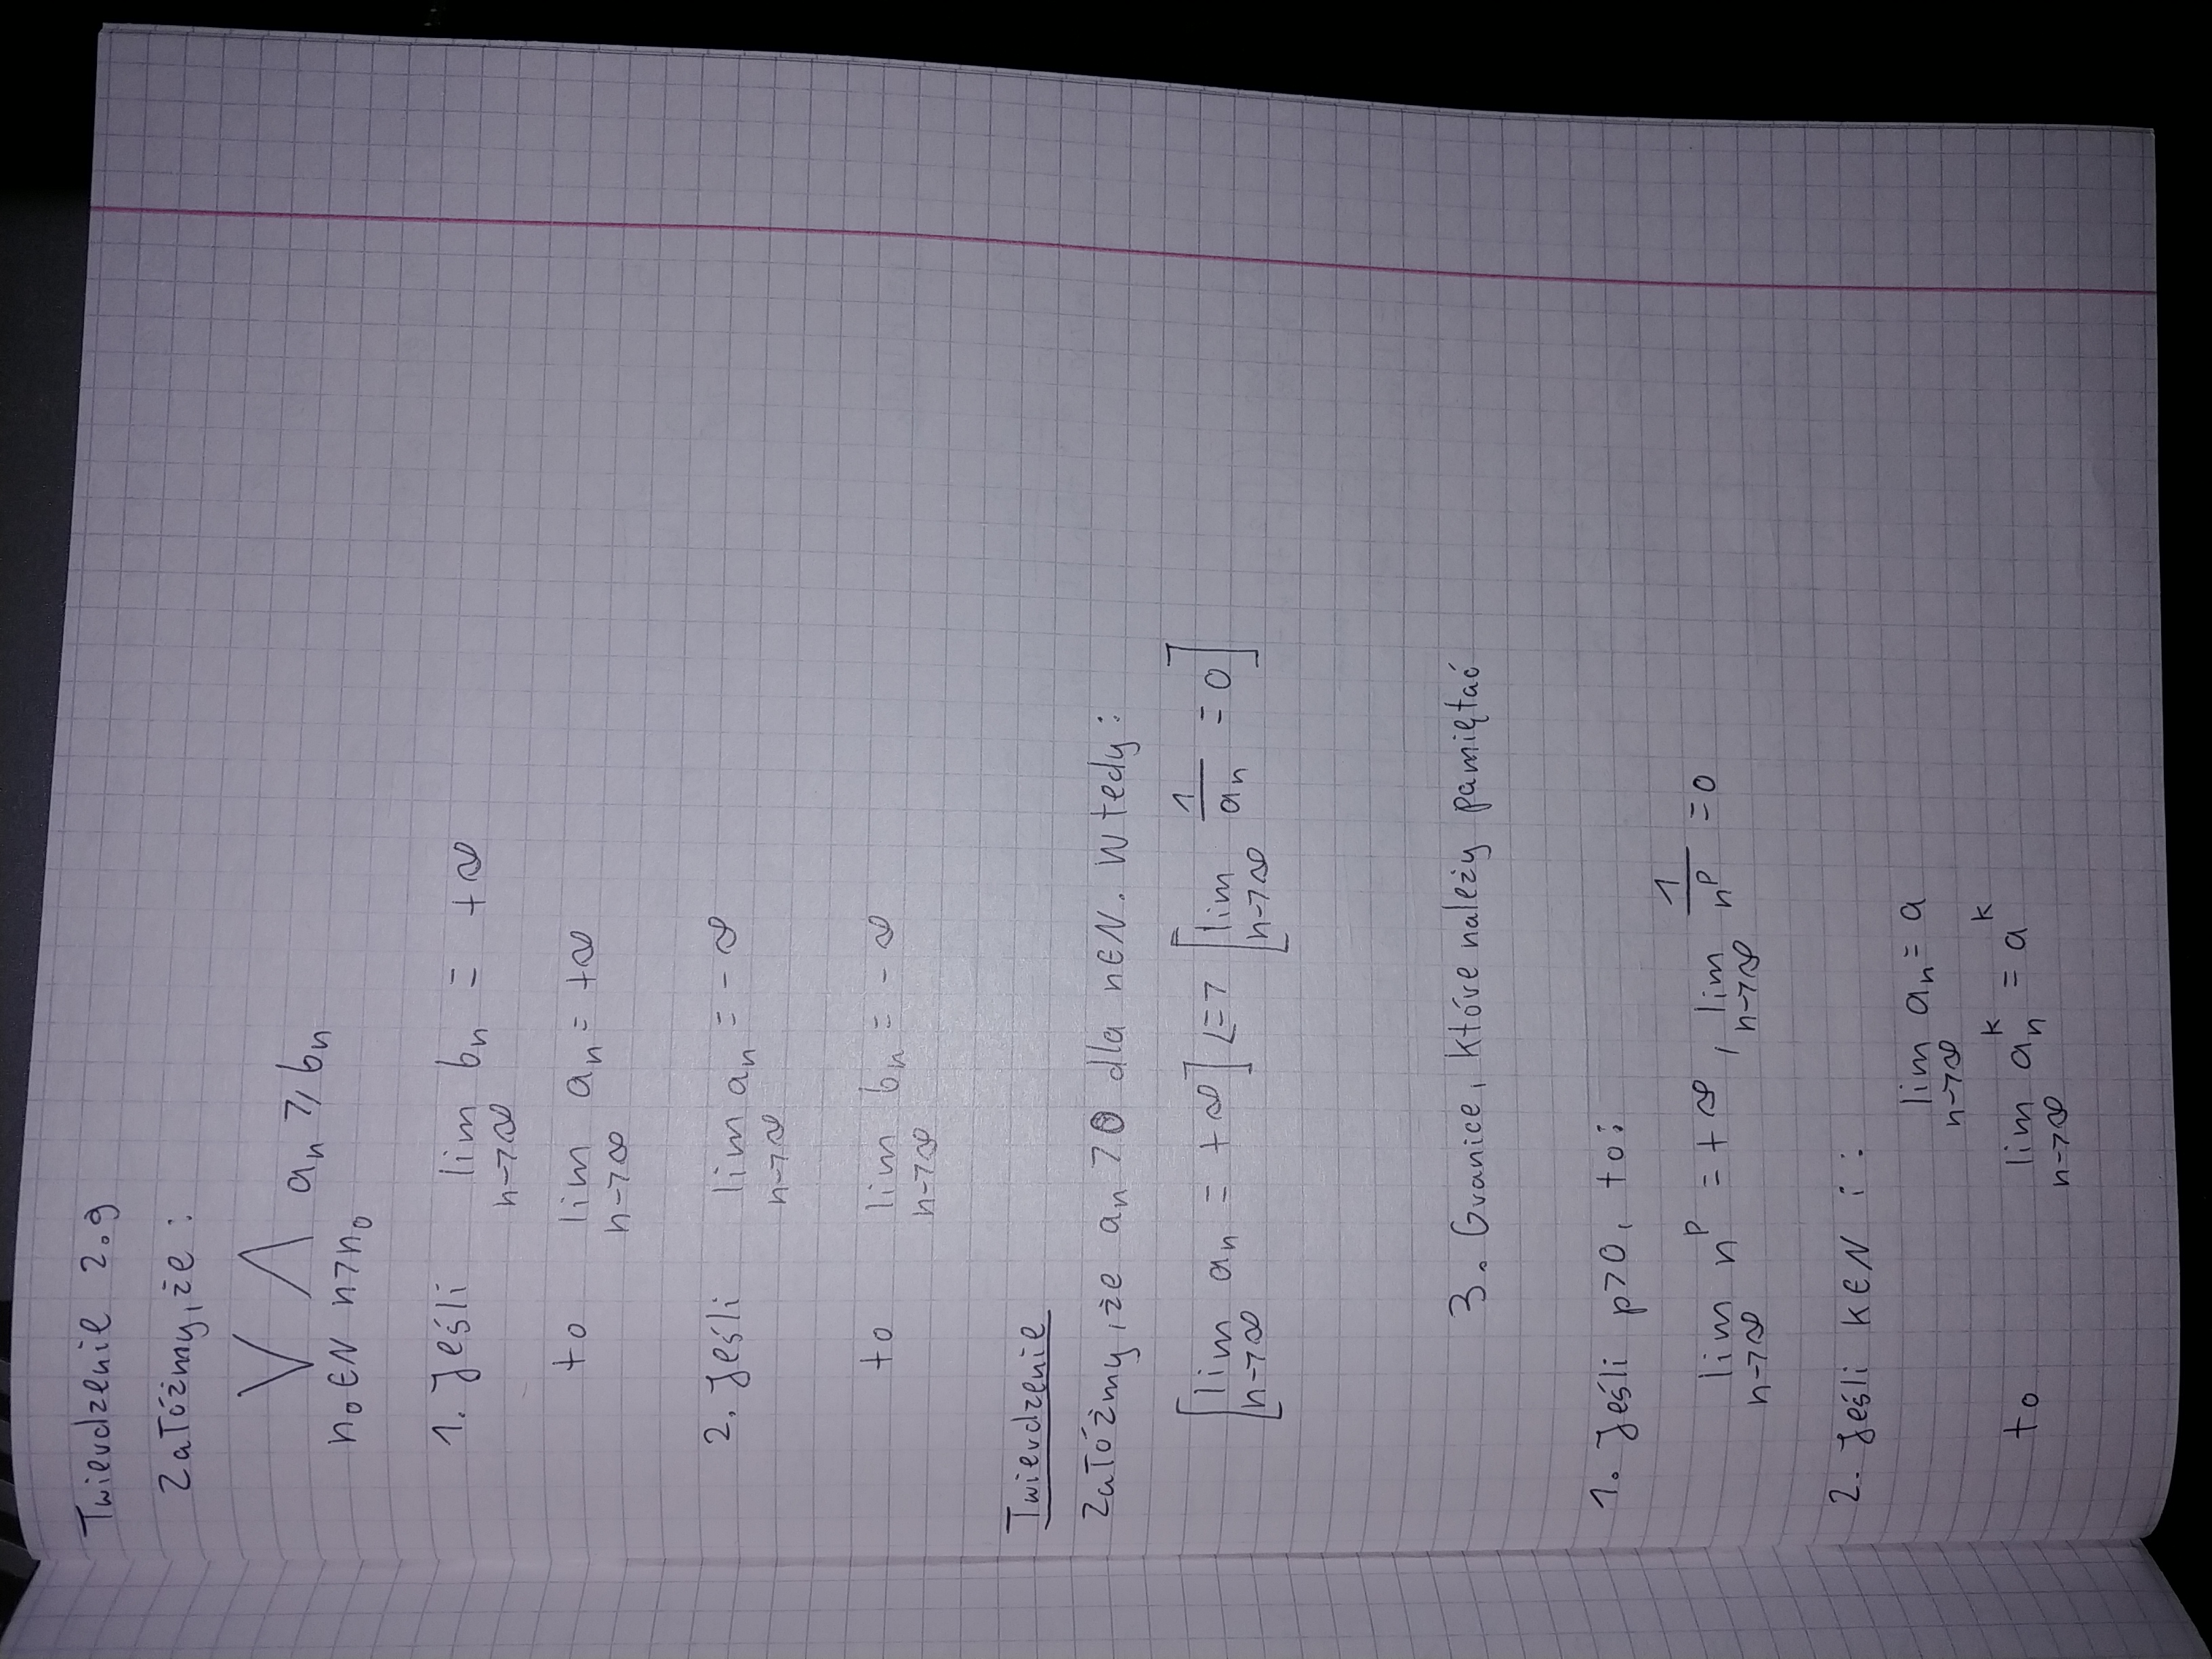 Twierdzenie 2.9
Załóżmy, że :
⋁ ⋀ aₙ ⩾ bₙ
n₀∈N n>n₀
1. Jeśli lim bₙ = +∞
n→∞
to lim aₙ = +∞
n→∞
2. Jeśli lim aₙ = - ∞
n→∞
to lim bₙ = - ∞
n→∞
Twierdzenie
Załóżmy, że aₙ > 0 dla n∈N. Wtedy :
[lim aₙ = +∞] <=> [lim 1/aₙ = 0]
n→∞ n→∞
3. Granice, które należy pamiętać
1. Jeśli p>0, to :
lim nᵖ = +∞, lim 1/nᵖ = 0
n→∞ n→∞
2. Jeśli k∈N i :
lim aₙ = a
n→∞
to lim aₙᵏ = aᵏ
n→∞